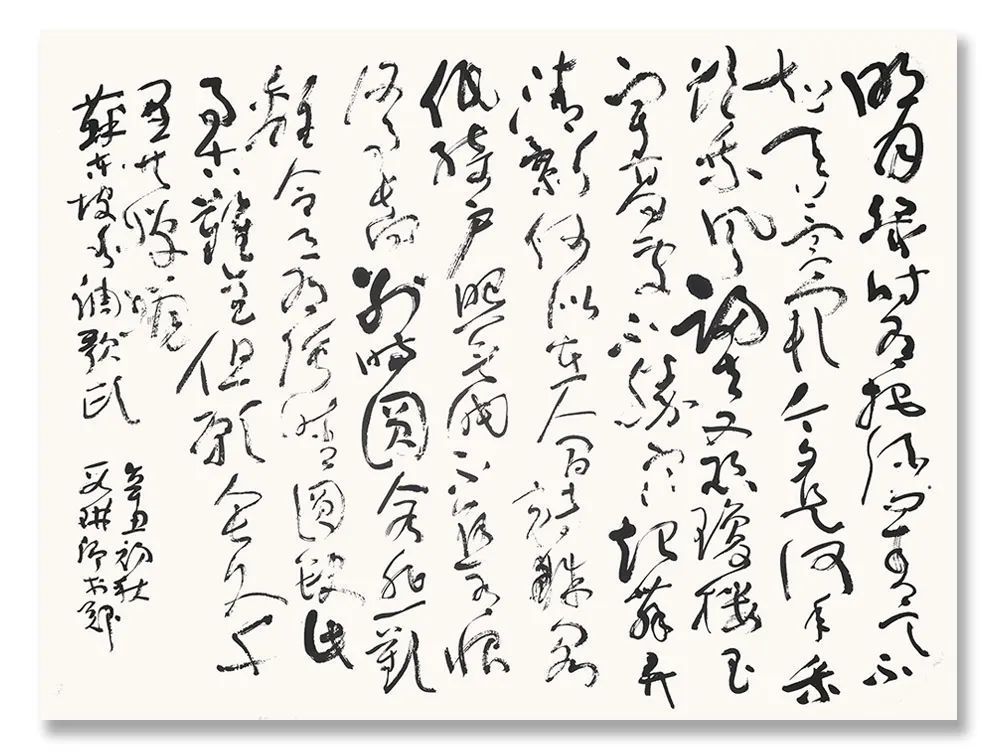 明月幾时有把酒问青天不
知天上宫阙今夕是何年我
欲乘风归去又恐瓊樓玉
宇高處不勝寒起舞弄
清影何似在人间转朱阁
低綺户照无眠不應有恨
何事长向别时圆人有悲歡
離合月有阴晴圆缺此
事古難全但愿人长久千
里共嬋娟
蘇东坡水调歌头
辛丑初秋